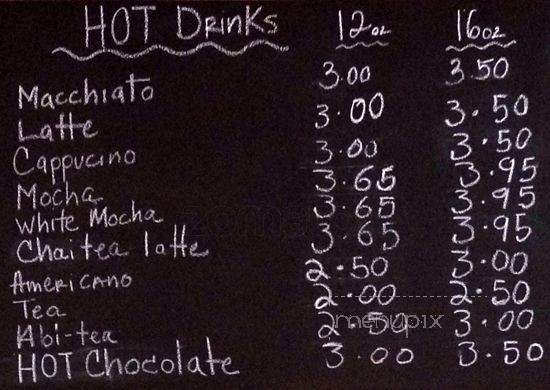 HOT Drinks 12oz 16oz
Macchiato 3.00 3.50
Latte 3.00 3.50
Cappucino 3.00 3.50
Mocha 3.65 3.95
White Mocha 3.65 3.95
Chai tea latte 3.65 3.95
Americano 2.50 3.00
Tea 2.00 2.50
Abi-tea 2.50 3.00
HOT Chocolate 3.00 3.50
menupix